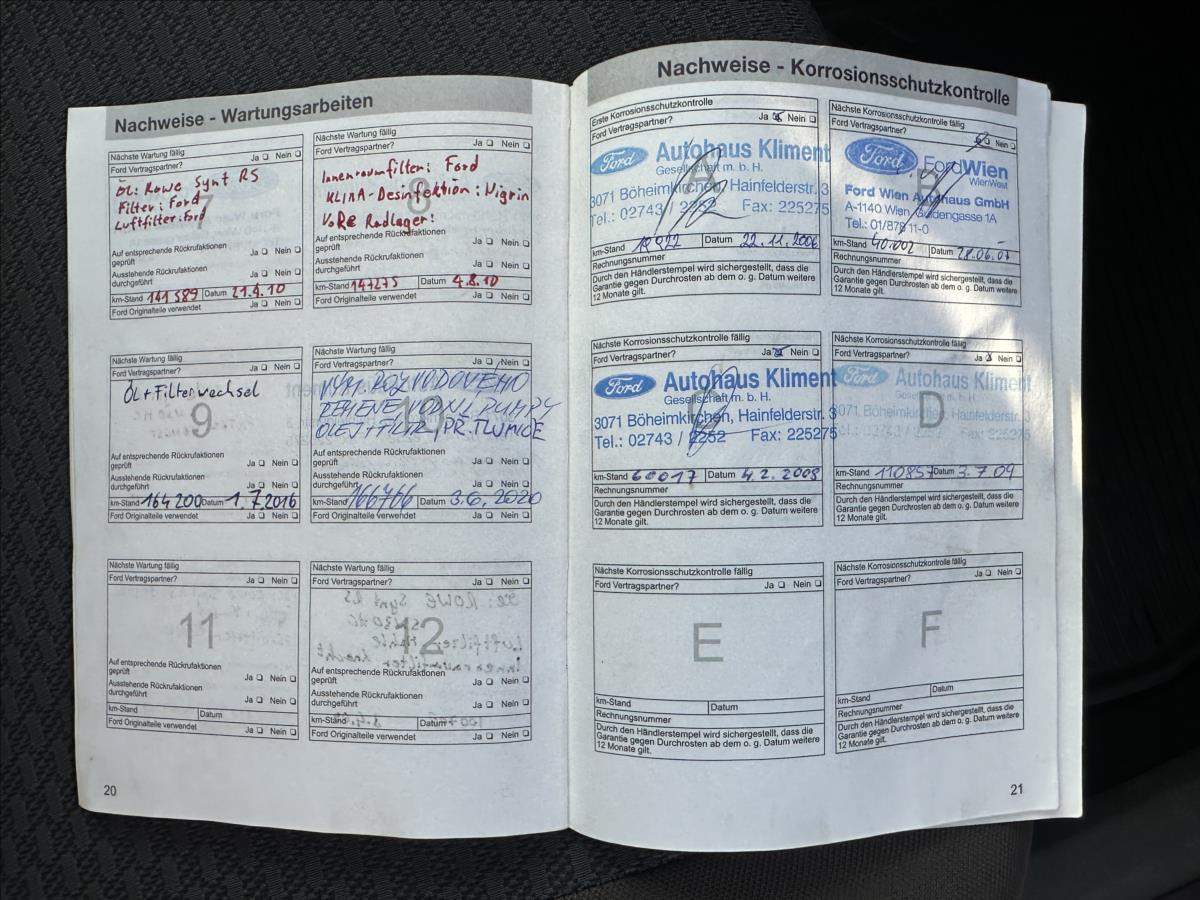 Nachweise - Wartungsarbeiten
Nächste Wartung fällig
Ford Vertragspartner? Ja Nein
7
Öl: Rowe Synt RS
Filter: Ford
Luftfilter: Ford
Auf entsprechende Rückrufaktionen
geprüft Ja Nein
Ausstehende Rückrufaktionen
durchgeführt Ja Nein
km-Stand 141 589 Datum 21.4.10
Ford Originalteile verwendet Ja Nein
Nächste Wartung fällig
Ford Vertragspartner? Ja Nein
8
Innenraumfilter: Ford
KLIMA-Desinfektion: Nigrin
VoRe Radlager:
Auf entsprechende Rückrufaktionen
geprüft Ja Nein
Ausstehende Rückrufaktionen
durchgeführt Ja Nein
km-Stand 147275 Datum 4.8.10
Ford Originalteile verwendet Ja Nein
Nächste Wartung fällig
Ford Vertragspartner? Ja Nein
ÖL+Filterwechsel
9
Auf entsprechende Rückrufaktionen
geprüft Ja Nein
Ausstehende Rückrufaktionen
durchgeführt Ja Nein
km-Stand 164200 Datum 1.7.2016
Ford Originalteile verwendet Ja Nein
Nächste Wartung fällig
Ford Vertragspartner? Ja Nein
10
VÝM. ROZVODOVÉHO
ŘEMENE, VODNÍ PUMPY
OLEJ+FILTR, PŘ. TLUMIČE
Auf entsprechende Rückrufaktionen
geprüft Ja Nein
Ausstehende Rückrufaktionen
durchgeführt Ja Nein
km-Stand 166766 Datum 3.6.2020
Ford Originalteile verwendet Ja Nein
Nächste Wartung fällig
Ford Vertragspartner? Ja Nein
11
Auf entsprechende Rückrufaktionen
geprüft Ja Nein
Ausstehende Rückrufaktionen
durchgeführt Ja Nein
km-Stand Datum
Ford Originalteile verwendet Ja Nein
Nächste Wartung fällig
Ford Vertragspartner? Ja Nein
12
Auf entsprechende Rückrufaktionen
geprüft Ja Nein
Ausstehende Rückrufaktionen
durchgeführt Ja Nein
km-Stand Datum
Ford Originalteile verwendet Ja Nein
20
Nachweise - Korrosionsschutzkontrolle
Erste Korrosionsschutzkontrolle
Ford Vertragspartner? Ja Nein
A
Ford Autohaus Kliment
Gesellschaft m. b. H.
3071 Böheimkirchen, Hainfelderstr. 3
Tel.: 02743 / 2252 Fax: 225275
km-Stand Datum 22.11.2006
Rechnungsnummer
Durch den Händlerstempel wird sichergestellt, dass die
Garantie gegen Durchrosten ab dem o. g. Datum weitere
12 Monate gilt.
Nächste Korrosionsschutzkontrolle fällig
Ford Vertragspartner? Nein
B
Ford FordWien
WienWest
Ford Wien Autohaus GmbH
A-1140 Wien, Guldengasse 1A
Tel.: 01/878 11-0
km-Stand 40.002 Datum 28.06.07
Rechnungsnummer
Durch den Händlerstempel wird sichergestellt, dass die
Garantie gegen Durchrosten ab dem o. g. Datum weitere
12 Monate gilt.
Nächste Korrosionsschutzkontrolle fällig
Ford Vertragspartner? Ja Nein
Ford Autohaus Kliment
Gesellschaft m. b. H.
3071 Böheimkirchen, Hainfelderstr. 3
Tel.: 02743 / 2252 Fax: 225275
km-Stand 60017 Datum 4.2.2008
Rechnungsnummer
Durch den Händlerstempel wird sichergestellt, dass die
Garantie gegen Durchrosten ab dem o. g. Datum weitere
12 Monate gilt.
Nächste Korrosionsschutzkontrolle fällig
Ford Vertragspartner? Ja Nein
D
Ford Autohaus Kliment
Gesellschaft m. b. H.
3071 Böheimkirchen, Hainfelderstr. 3
km-Stand 110857 Datum 3.7.09
Rechnungsnummer
Durch den Händlerstempel wird sichergestellt, dass die
Garantie gegen Durchrosten ab dem o. g. Datum weitere
12 Monate gilt.
Nächste Korrosionsschutzkontrolle fällig
Ford Vertragspartner? Ja Nein
E
km-Stand Datum
Rechnungsnummer
Durch den Händlerstempel wird sichergestellt, dass die
Garantie gegen Durchrosten ab dem o. g. Datum weitere
12 Monate gilt.
Nächste Korrosionsschutzkontrolle fällig
Ford Vertragspartner? Ja Nein
F
km-Stand Datum
Rechnungsnummer
Durch den Händlerstempel wird sichergestellt, dass die
Garantie gegen Durchrosten ab dem o. g. Datum weitere
12 Monate gilt.
21